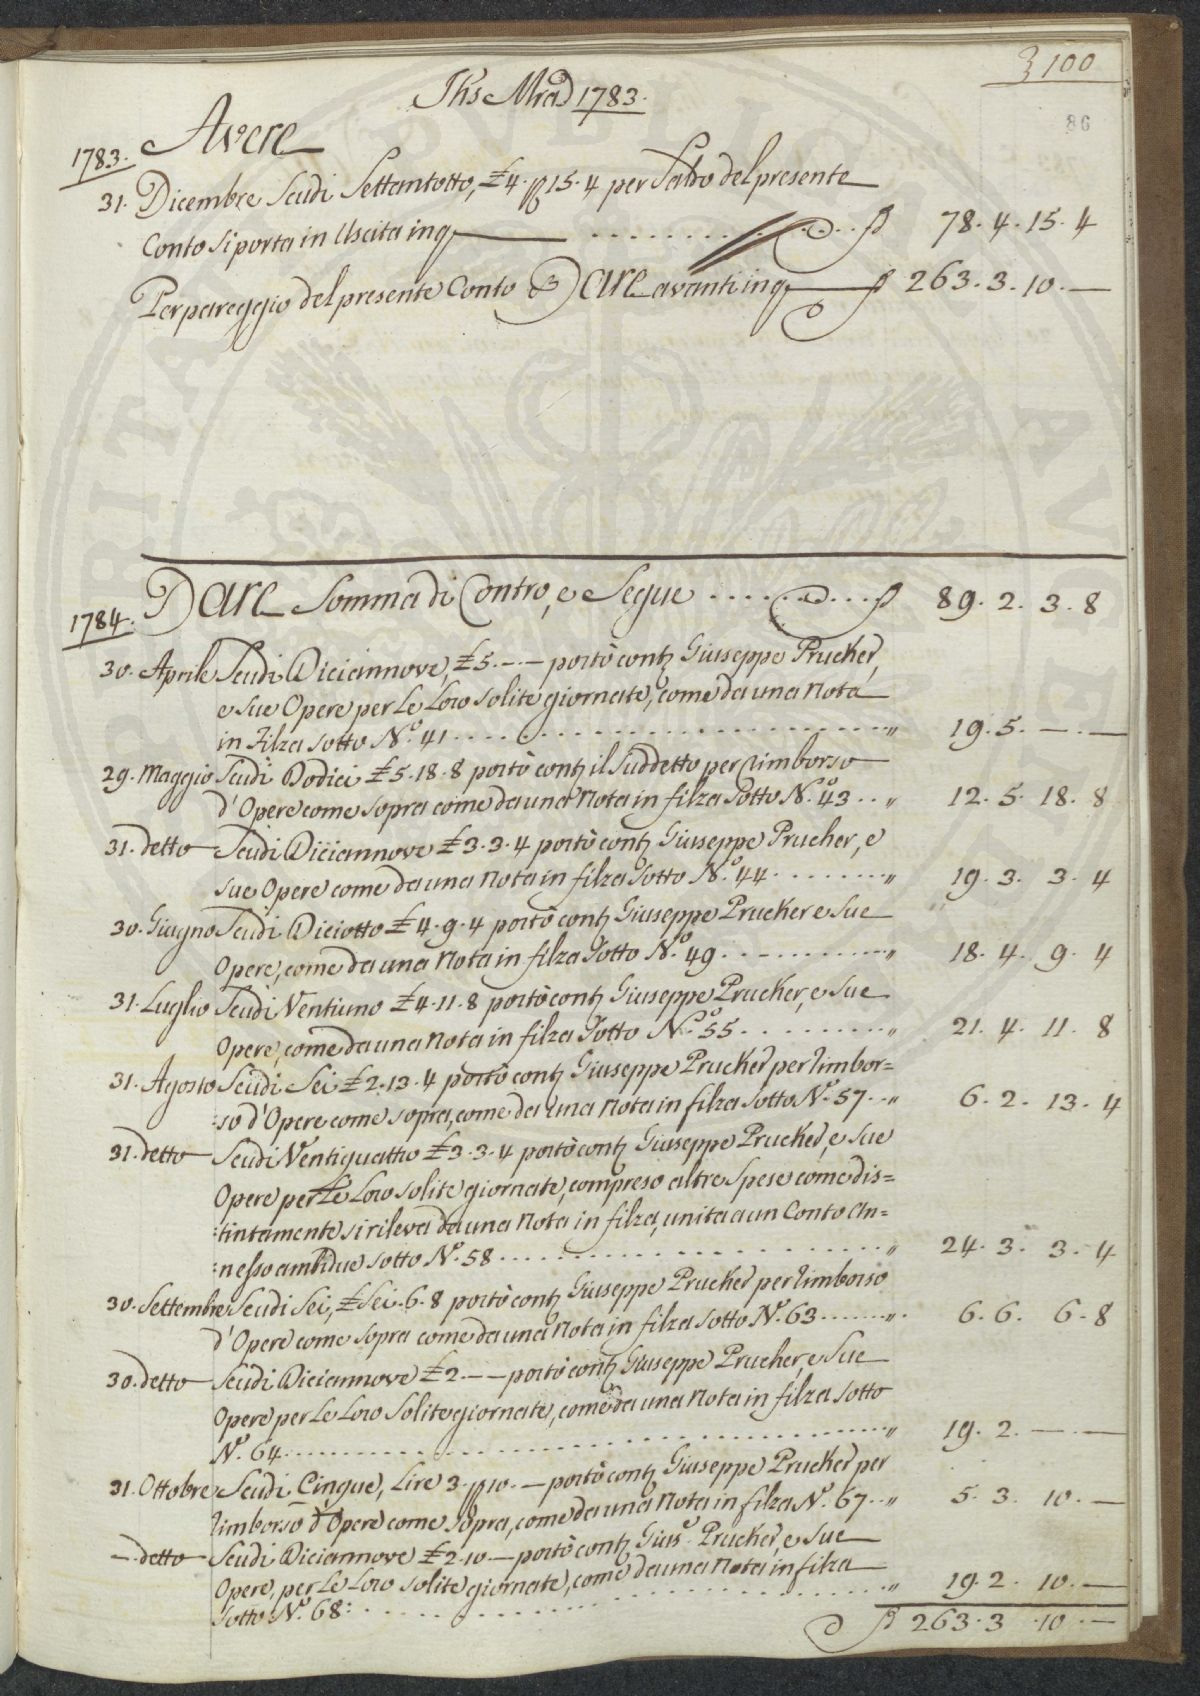 100
Jhs Mrad 1783.
86
Avere
1783.
31. Dicembre Scudi Settantotto, £ 4. 15. 4 per Saldo del presente
Conto si porta in Uscita in q 78. 4. 15. 4
Per pareggio del presente Conto Dare avanti in q 263. 3. 10. —
Dare Somma di Contro, e Segue 89. 2. 3. 8
1784.
30. Aprile Scudi Diciannove, £ 5. — . — portò contti Giuseppe Prucker,
e sue Opere per Le Loro solite giornate, come da una Nota
in Filza sotto N.º 41 " 19. 5. — . —
29. Maggio Scudi Dodici £ 5. 18. 8 portò contti il Suddetto per rimborso
d'Opere come sopra come da una Nota in filza Sotto N.º 43 " 12. 5. 18. 8
31. detto Scudi Diciannove £ 3. 3. 4 portò contti Giuseppe Prucher, e
sue Opere come da una Nota in filza Sotto N.º 44 " 19. 3. 3. 4
30. Giugno Scudi Diciotto £ 4. 9. 4 portò contti Giuseppe Prucker e Sue
Opere, come da una Nota in filza Sotto N.º 49 " 18. 4. 9. 4
31. Luglio Scudi Ventiuno £ 4. 11. 8 portò contti Giuseppe Prucker, e Sue
Opere, come da una Nota in filza Sotto N.º 55 " 21. 4. 11. 8
31. Agosto Scudi Sei £ 2. 13. 4 portò contti Giuseppe Prucker per rimbor=
:so d'Opere come sopra, come da una Nota in filza sotto N.º 57 " 6. 2. 13. 4
31. detto Scudi Ventiquattro £ 3. 3. 4 portò contti Giuseppe Prucker, e sue
Opere per Le Loro solite giornate, compreso altre Spese come dis=
:tintamente si rileva da una Nota in filza, unita a un Conto an=
:nesso ambidue sotto N.º 58 " 24. 3. 3. 4
30. Settembre Scudi Sei, £ Sei. 6. 8 portò contti Giuseppe Prucker per rimborso
d'Opere come sopra come da una Nota in filza sotto N.º 63 " 6. 6. 6. 8
30. detto Scudi Diciannove £ 2. — — portò contti Giuseppe Prucher, e Sue
Opere per Le Loro Solite giornate, come da una Nota in filza sotto
N.º 64 " 19. 2. — . —
31. Ottobre Scudi Cinque, Lire 3. 10. — portò contti Giuseppe Prucker per
rimborso d'Opere come sopra, come da una Nota in filza N.º 67 " 5. 3. 10. —
— . detto Scudi Diciannove £ 2. 10 — portò contti Gius.e Prucker, e Sue
Opere, per Le Loro solite giornate, come da una Nota in filza
Sotto N.º 68: " 19. 2. 10. —
263. 3. 10. —